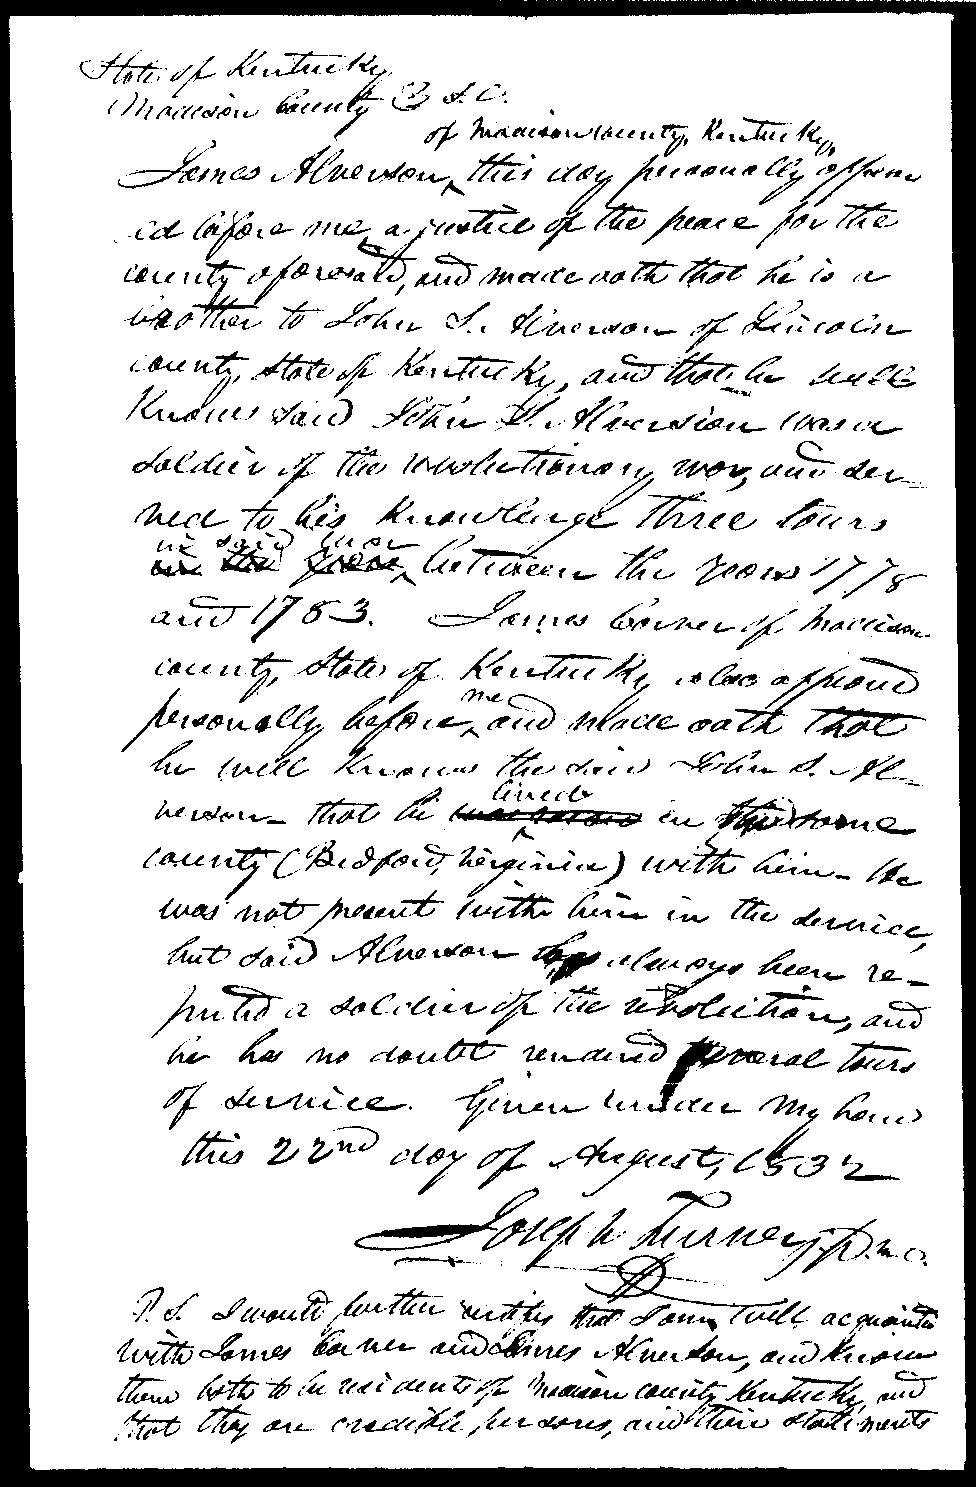 State of Kentucky
Madison County } S. C.
of Madison county, Kentucky,
James Alverson, this day personally appear
ed before me, a justice of the peace for the
county aforesaid, and made oath that he is a
brother to John S. Alverson of Lincoln
county, State of Kentucky, and that he well
Knows said John S. Alverson was a
soldier of the revolutionary war, and ser-
ved to his knowledge three tours
in said war
between the years 1778
and 1783. James Corner of Madison
county, State of Kentucky also appeard
me
personally before and made oath that
he well knows the said John S. Al-
lived
verson- that he in the same
county (Bedford, Verginia) with him- He
was not present with him in the service,
but said Alverson has always been re-
puted a soldier of the revolution, and
he has no doubt rendered several tours
of service. Given under my hand
this 22nd day of August, 1832
Joseph Turner, j. p. m. c.
P. S. I would further certify that I am well acquainted
with James Corner and James Alverson, and know
them both to be residents of Madison county Kentucky, and
that they are credible persons, and their statements